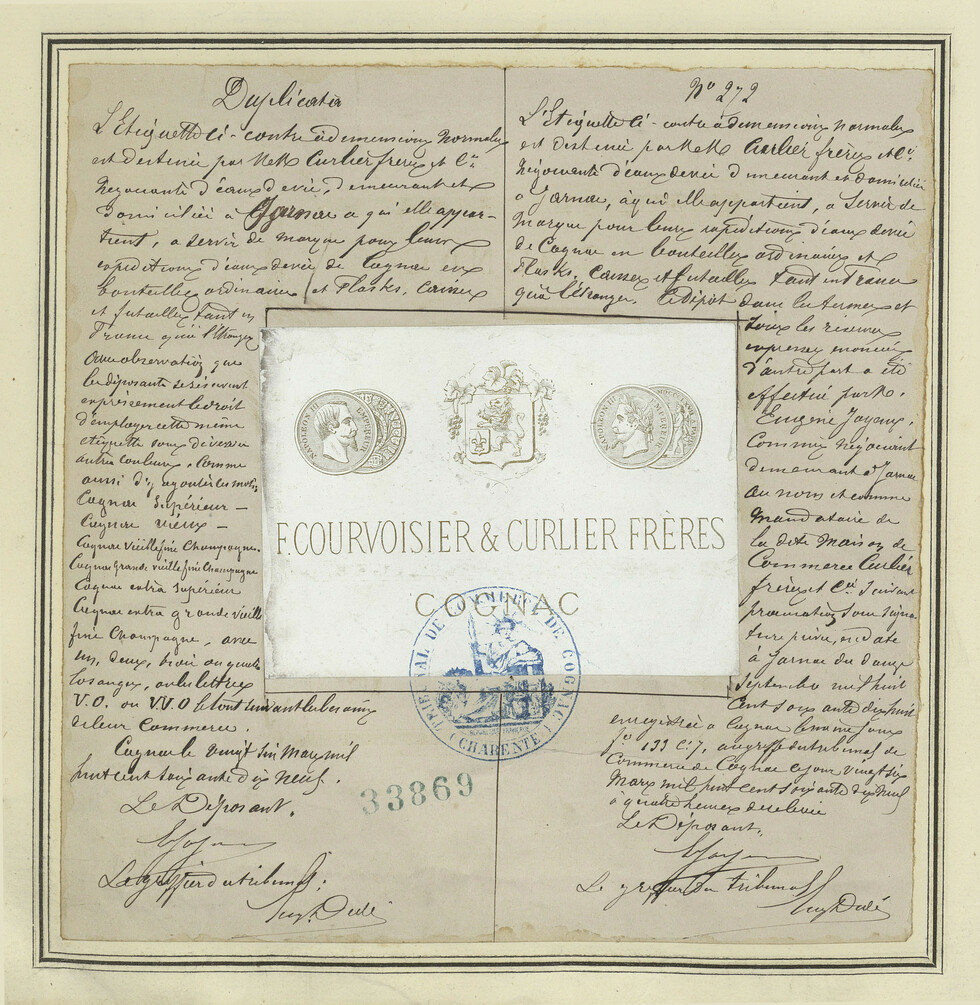 Duplicata
L'Etiquette ci-contre à dimensions Normales
est destinée par MM. Curlier frères et Cie
Négociants d'eaux de vie, demeurant et
domiciliés à Jarnac a qui elle appar-
tient, a servir de marque pour leurs
expéditions d'eaux de vie de Cognac en
bouteilles ordinaires et Flasks, caisses
et futailles tant en
France qu'à l'étranger
avec observation que
les déposants se réservent
expressément le droit
d'employer cette même
etiquette sous diverses
autres couleurs, comme
aussi d'y ajouter les mots
Cognac Supérieur -
Cognac vieux -
Cognac vieille fine Champagne.
Cognac grande vieille fine Champagne
Cognac extra Supérieur
Cognac extra grande vieille
fine Champagne, avec
un, deux, trois ou quatre
losanges, ou les lettres
V.O. ou V.V.O le tout suivant les besoins
de leur Commerce.
Cognac le vingt six Mars mil
huit cent soixante dix neuf.
Le Déposant,
Le greffier du tribunal:
No 272
L'Etiquette ci-contre à dimensions normales
est destinée par MM. Curlier frères et Cie
Négociants d'eaux de vie demeurant et domiciliés
a Jarnac, à qui elle appartient, a servir de
Marque pour leurs expéditions d'eaux de vie
de Cognac en bouteilles ordinaires et
Flasks, caisses et futailles tant en France
qu'à l'étranger. Le Dépôt dans les termes et
sous les réserves
expresses énoncées
d'autre part a été
effectué par M.
Eugène Joyeux,
Commis négociant
demeurant à Jarnac
au nom et comme
Mandataire de
la dite Maison de
Commerce Curlier
frères et Cie suivant
procuration sous signa-
ture privée, en date
à Jarnac du douze
Septembre mil huit
cent soixante dix huit
enregistrée à Cognac le même jour
fo 133 C. 7, au greffe du tribunal de
Commerce de Cognac ce jour vingt six
Mars mil huit cent soixante dix neuf
à quatre heures de relevée
Le Déposant,
Le greffier du tribunal
NAPOLEON III EMPEREUR
NAPOLEON III EMPEREUR
F. COURVOISIER & CURLIER FRÈRES
COGNAC
TRIBUNAL DE COMMERCE DE COGNAC
(CHARENTE)
33869